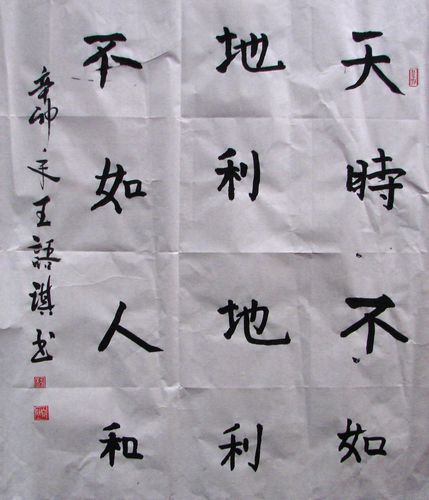 天時不如
地利地利
不如人和
辛卯王語琪书